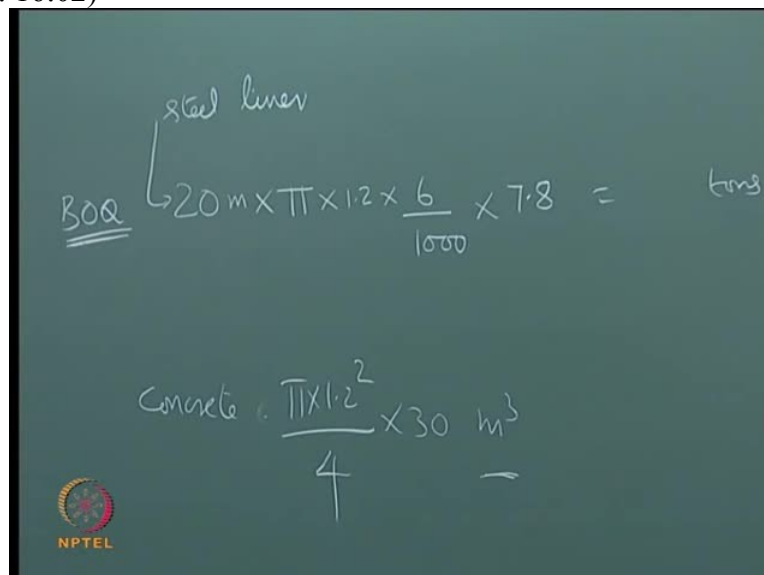 : 18:02)
steel liner
BOQ 20 m × π × 1.2 × 6/1000 × 7.8 = tons
Concrete . π×1.2²/4 × 30 m³
NPTEL